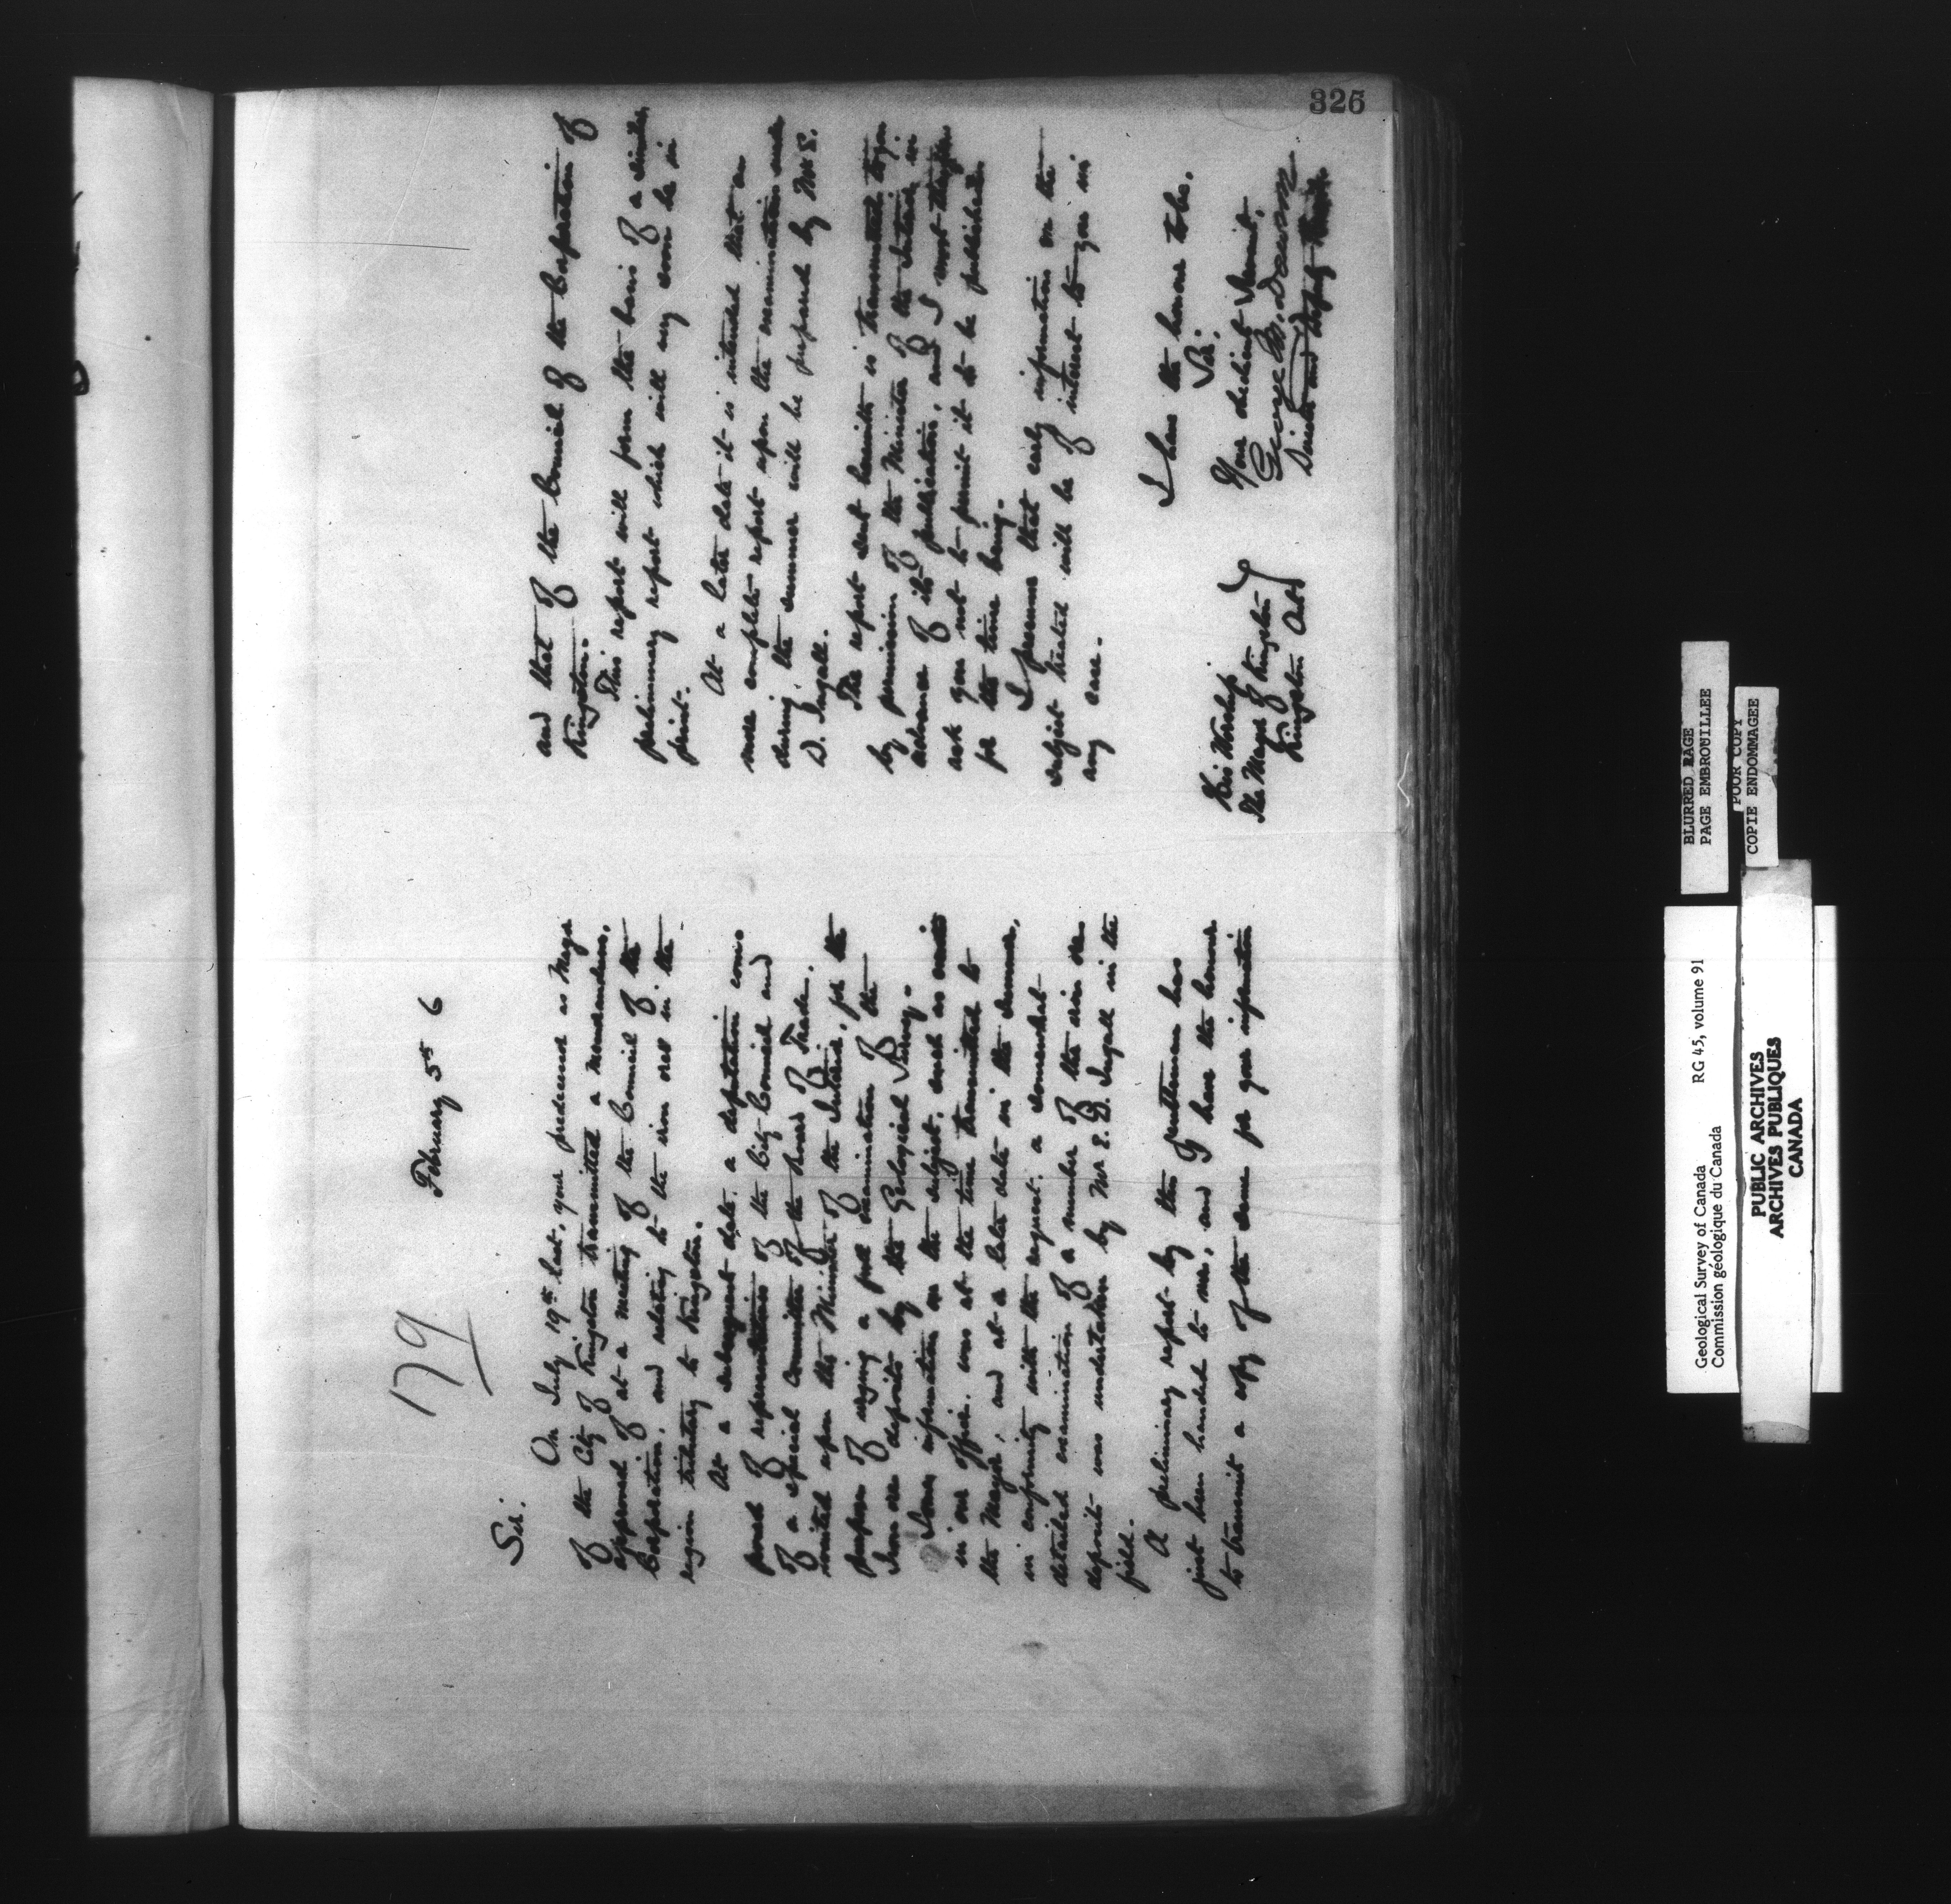 326
179
February 5th 6
Sir.
On July 19th last, your predecessor as Mayor
of the City of Kingston transmitted a memorandum,
approved of at a meeting of the Council of the
Corporation, and relating to the iron ores in the
region tributary to Kingston.
At a subsequent date a deputation com-
posed of representatives of the City Council and
of a Special Committee of the Board of Trade,
waited upon the Minister of the Interior, for the
purpose of urging a full examination of the
Iron ore deposits by the Geological Survey.
Some information on the subject, such as
in our office, was at the time transmitted to
the Mayor, and at a later date in the summer,
in conformity with the request, a somewhat
detailed examination of a number of the iron ore
deposits was undertaken by Mr E. D. Ingall in the
field.
A preliminary report by this gentleman has
just been handed to me, and I have the honour
to transmit a copy of the same for your information
and that of the Council of the Corporation of
Kingston.
This report will form the basis of a similar
preliminary report which will very soon be in
print.
At a later date it is intended that a
more complete report upon the examinations made
during the summer will be prepared by Mr E.
D. Ingall.
The report sent herewith is transmitted to you
by permission of the Minister of the Interior in
advance of its publication, and I must therefore
ask you not to permit it to be published
for the time being.
I presume that early information on the
subject treated will be of interest to you in
any case.
I have the honour to be,
Sir,
Your obedient Servant,
George M. Dawson
Director and Deputy Head
His Worship
The Mayor of Kingston
Kingston Ont
BLURRED PAGE
PAGE EMBROUILLEE
POOR COPY
COPIE ENDOMMAGEE
Geological Survey of Canada RG 45, volume 91
Commission géologique du Canada
PUBLIC ARCHIVES
ARCHIVES PUBLIQUES
CANADA